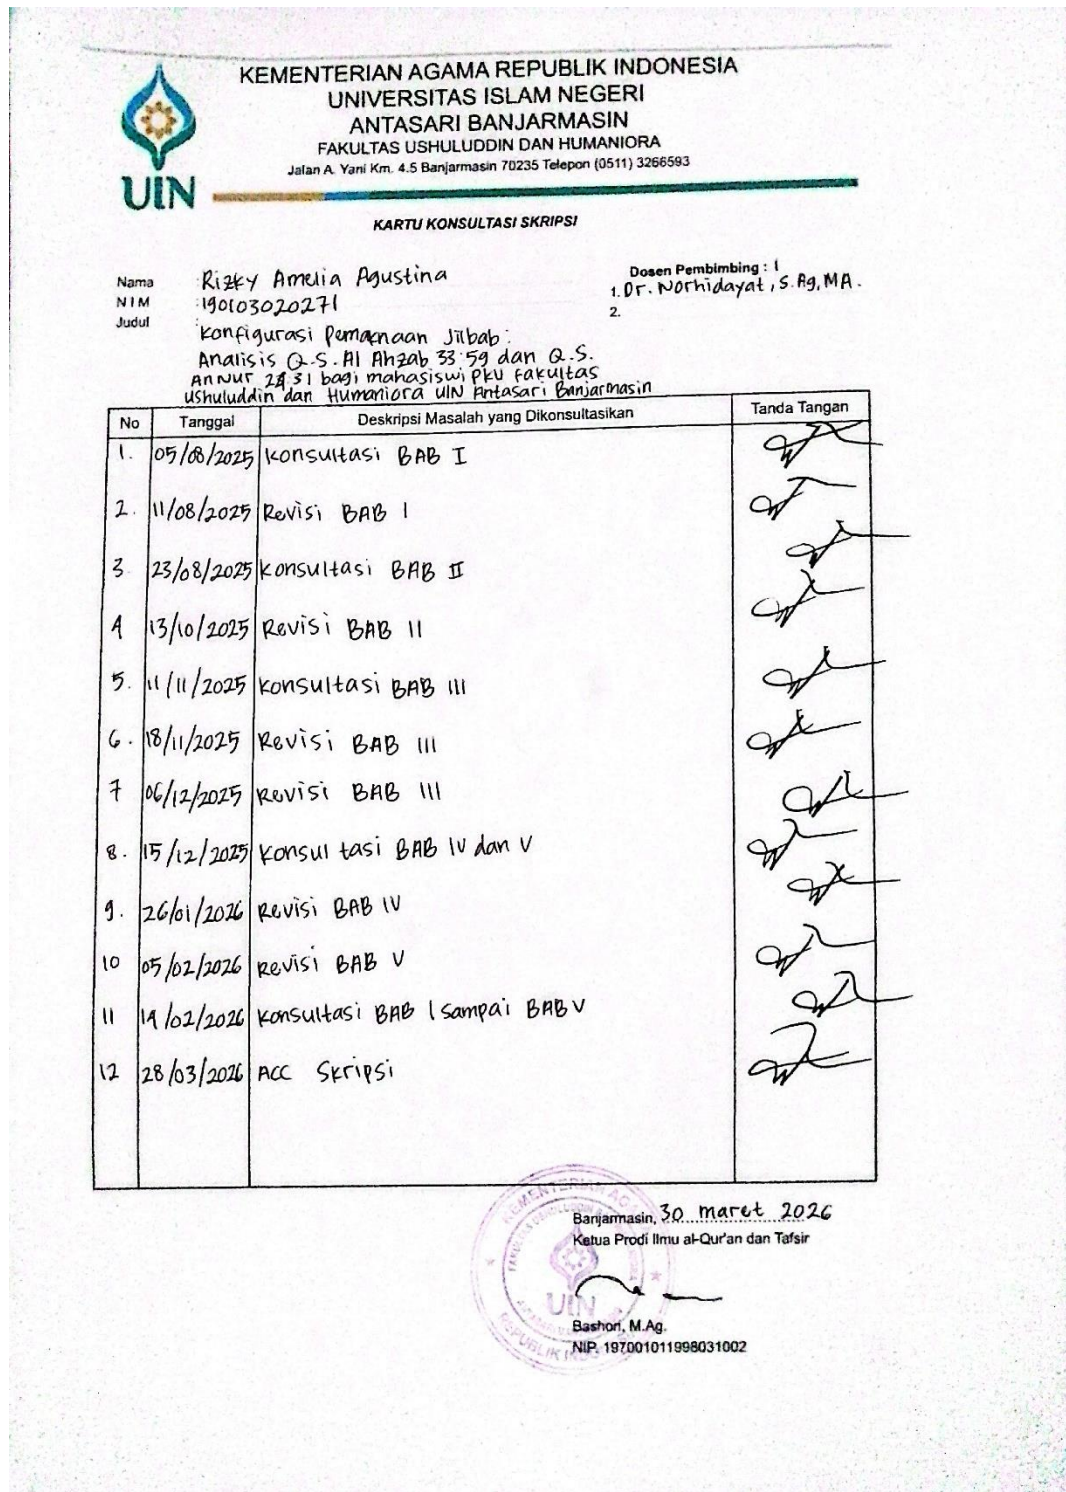 KEMENTERIAN AGAMA REPUBLIK INDONESIA
UNIVERSITAS ISLAM NEGERI
ANTASARI BANJARMASIN
FAKULTAS USHULUDDIN DAN HUMANIORA
Jalan A. Yani Km. 4.5 Banjarmasin 70235 Telepon (0511) 3266593
UIN
KARTU KONSULTASI SKRIPSI
Nama : Rizky Amelia Agustina
NIM : 190103020271
Judul : Konfigurasi Pemaknaan Jilbab :
Analisis Q.S. Al Ahzab 33:59 dan Q.S.
An Nur 24:31 bagi mahasiswi PKU Fakultas
Ushuluddin dan Humaniora UIN Antasari Banjarmasin
Dosen Pembimbing : 1
1. Dr. Norhidayat, S.Ag, MA.
2.
No Tanggal Deskripsi Masalah yang Dikonsultasikan Tanda Tangan
1. 05/08/2025 Konsultasi BAB I
2. 11/08/2025 Revisi BAB I
3. 23/08/2025 Konsultasi BAB II
4 13/10/2025 Revisi BAB II
5. 11/11/2025 Konsultasi BAB III
6. 18/11/2025 Revisi BAB III
7 06/12/2025 Revisi BAB III
8. 15/12/2025 Konsultasi BAB IV dan V
9. 26/01/2026 Revisi BAB IV
10 05/02/2026 Revisi BAB V
11 14/02/2026 Konsultasi BAB I sampai BAB V
12 28/03/2026 ACC Skripsi
Banjarmasin, 30 maret 2026
Ketua Prodi Ilmu al-Qur'an dan Tafsir
KEMENTERIAN AGAMA
UIN
REPUBLIK INDONESIA
Bashori, M.Ag.
NIP. 197001011998031002